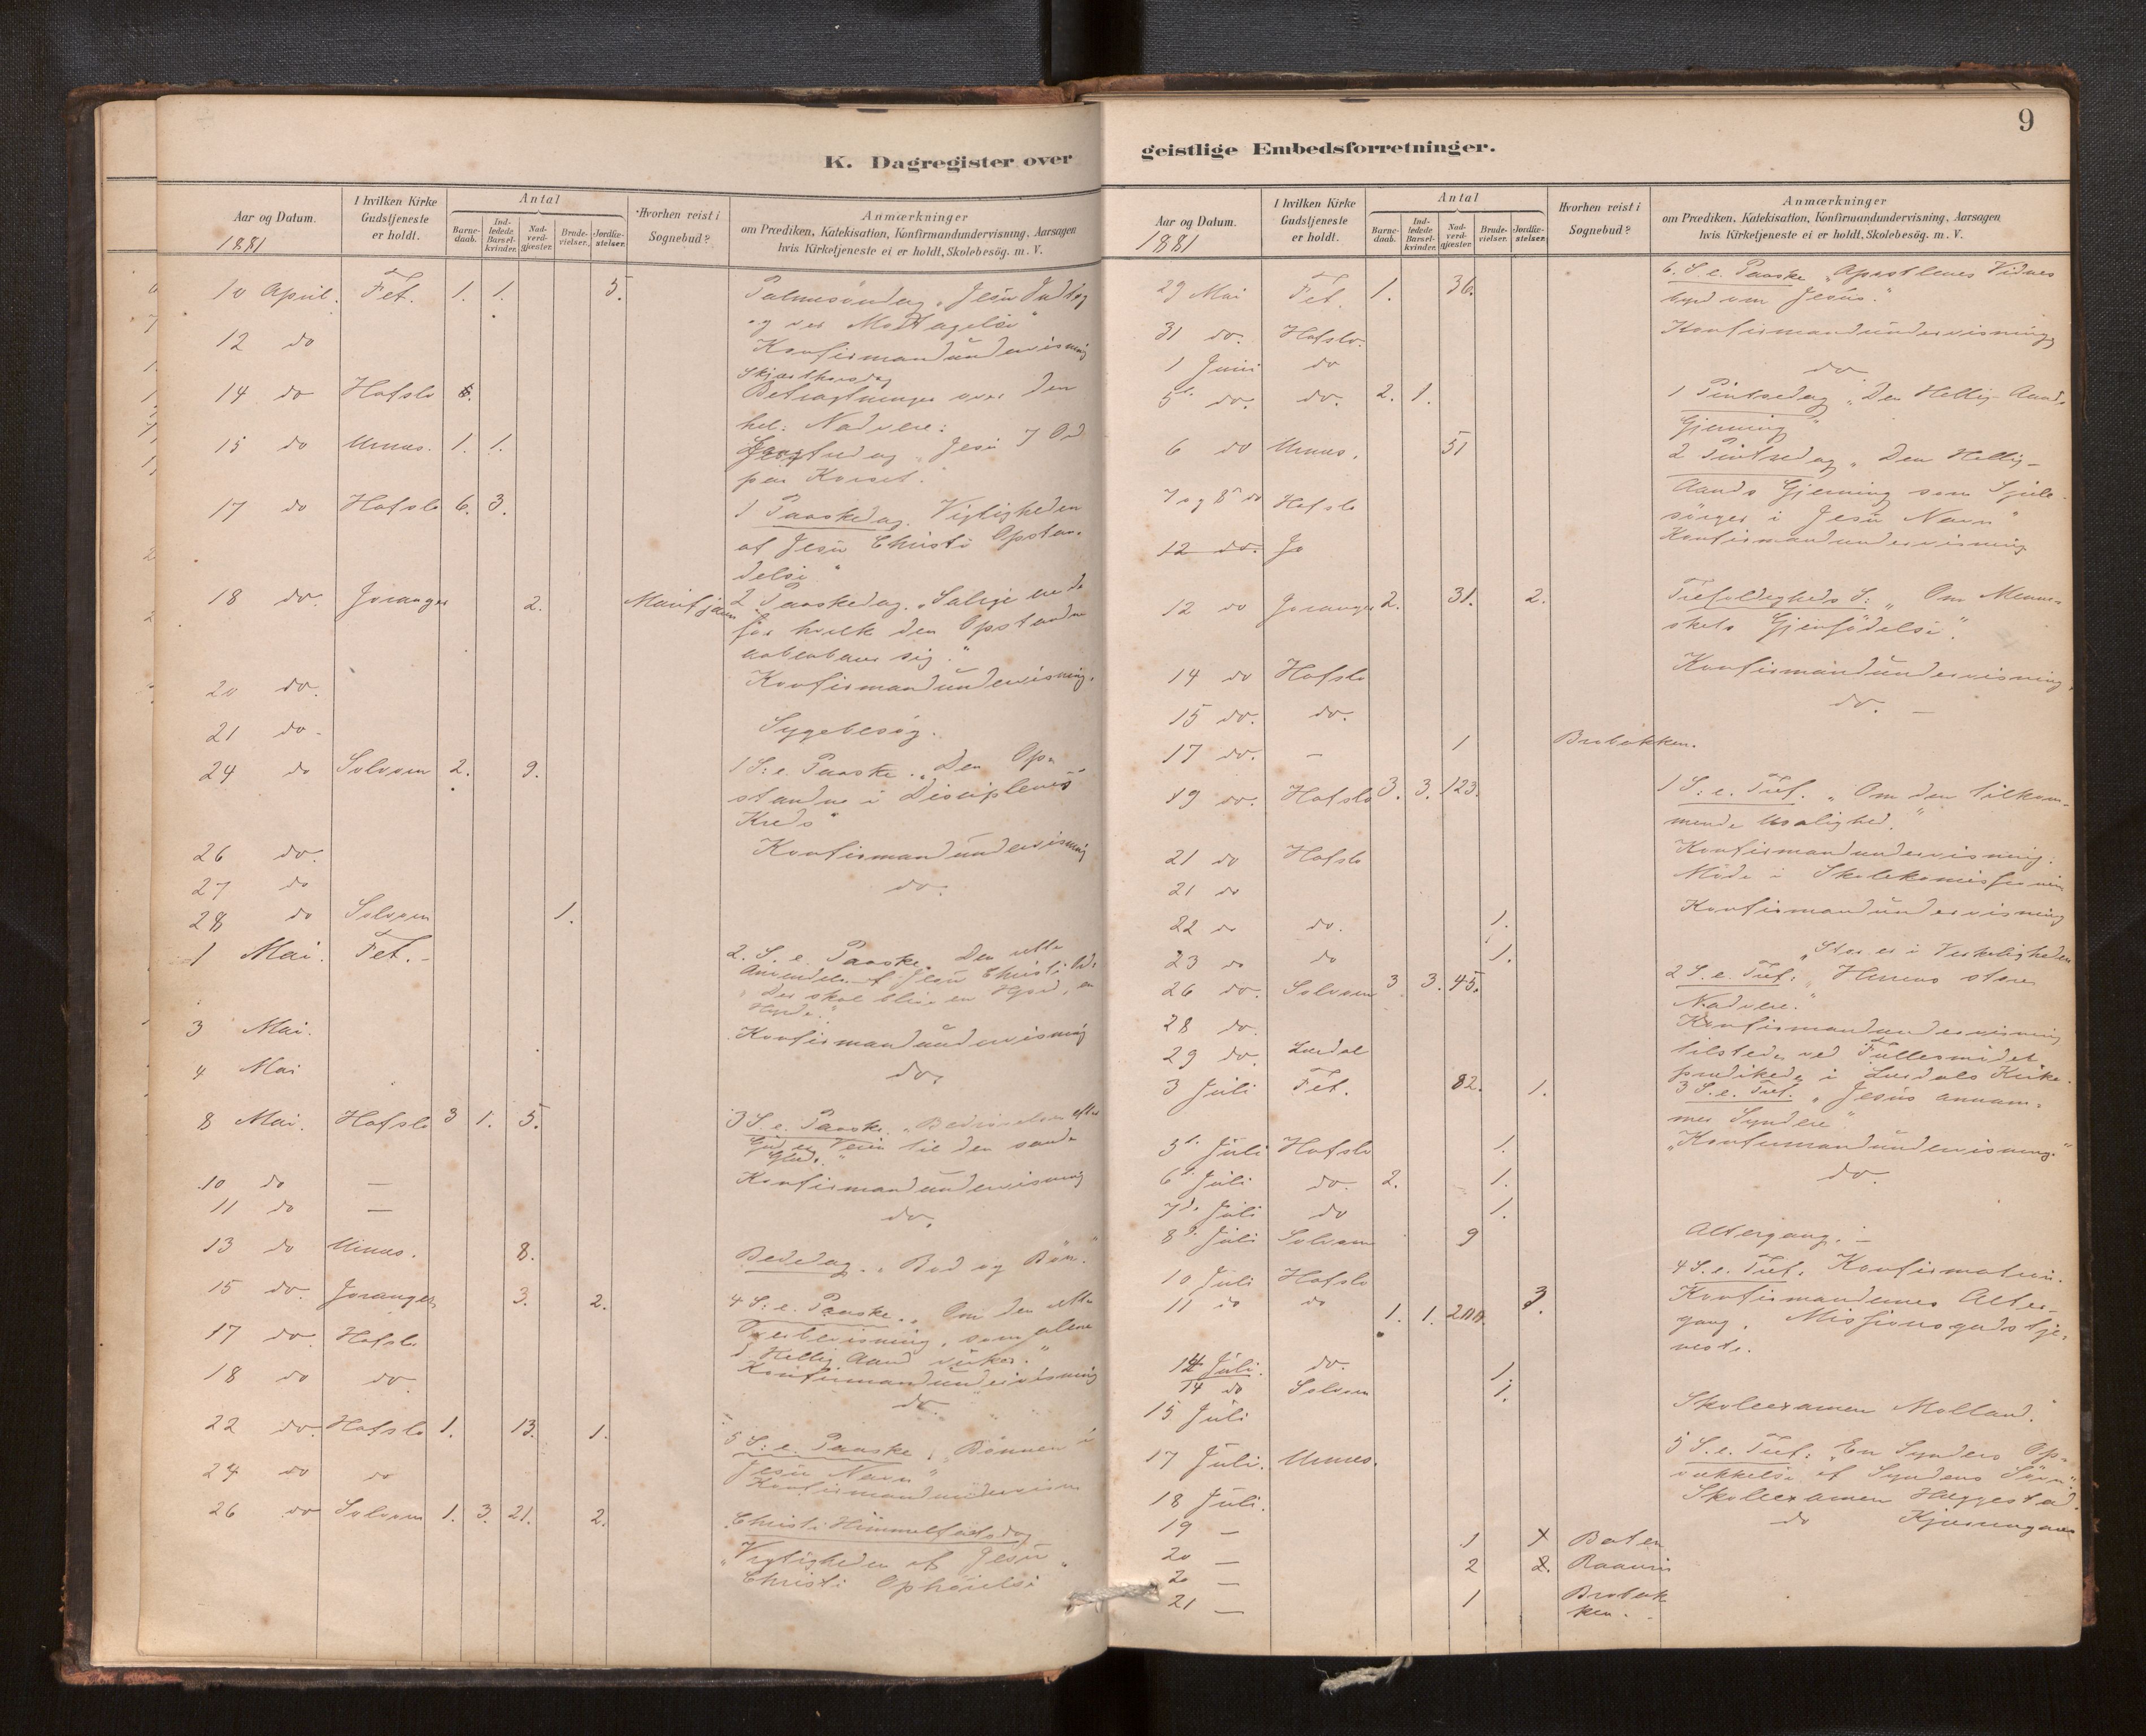 K. Dagregister over
Aar og Datum.
1881
I hvilken Kirke
Gudstjeneste
er holdt.
Antal
Barne-
daab.
Ind-
ledede
Barsel-
kvinder.
Nad-
verd-
gjester.
Brude-
vielser.
Jordfæ-
stelser.
Hvorhen reist i
Sognebud?
Anmærkninger
om Prædiken, Katekisation, Konfirmandundervisning, Aarsagen
hvis Kirketjeneste ei er holdt, Skolebesög. m. V.
10 April. Fet. 1. 1. 5. Palmesöndag „Jesu Indtog
og
12 do Konfirmandundervisning
Skjærthorsdag
14 do Hafslo Betragtninger over den
hel: Nadvere:
15 do Urnes. 1. 1. Jesu 7 Ord
paa Korset."
17 do Hafslo 6. 3. 1 Paaskedag. Vigtigheden
af Jesu Christi Opstan-
delse."
18 do. Joranger 2. 2 Paaskedag. „Salige ere de
for hvilke den Opstandne
aabenbarer sig."
20 do. Konfirmandundervisning.
21 do. Sygebesög.
24 do Solvorn 2. 9. 1 S: e. Paaske. „Den Op-
standne i Disciplenes
Kreds"
26 do. Konfirmandundervisning
27 do do.
28 do Solvorn 1.
1 Mai. Fet. 2. S. e. Paaske. Den rette
Anvendelse af Jesu Christi
„Der skal blive en Hjord, en
Hyrde."
3 Mai. Konfirmandundervisning
4 Mai do.
8 Mai. Hafslo 3 1. 5. 3 S. e. Paaske. „Bedrövelsen efter
Gud er Veien til den sande
Glæde."
10 do — Konfirmandundervisning
11 do — do.
13 do Urnes. 8. Bededag. „Bod og Bön."
15 do. Joranger 3. 2. 4 S: e. Paaske. „Om den rette
Overbevisning, som alene
d Hellig Aand virker."
17 do. Hafslo Konfirmandundervisning
18 do do. do.
22 do. Hafslo 1. 13. 1. 5 S: e. Paaske. „Bönnen i
Jesu Navn"
24 do do Konfirmandundervisn
26 do Solvorn 1. 3. 21. 2. Christi Himmelfartsdag
„Vigtigheden af Jesu
Christi Ophöielse"
9
geistlige Embedsforretninger.
Aar og Datum.
1881
I hvilken Kirke
Gudstjeneste
er holdt.
Antal
Barne-
daab.
Ind-
ledede
Barsel-
kvinder.
Nad-
verd-
gjester.
Brude-
vielser.
Jordfæ-
stelser.
Hvorhen reist i
Sognebud?
Anmærkninger
om Prædiken, Katekisation, Konfirmandundervisning, Aarsagen
hvis Kirketjeneste ei er holdt, Skolebesög. m. V.
29 Mai Fet. 1. 36. 6. S. e. Paaske „Apostlenes Vidnes
byrd om Jesus."
31 do. Hafslo. Konfirmandundervisning
1 Juni do do
5t. do. do. 2. 1. 1 Pintsedag „Den Hellig-Aands
Gjerning"
6 do Urnes. 51 2 Pintsedag „Den Hellig-
Aands Gjerning som Sjæle
sörger i Jesu Navn"
7 og 8 do Hafslo Konfirmandundervisning
12 do. Jo
12 do Joranger 2. 31. 2. Trefoldigheds S: „Om Menne-
skets Gjenfödelse."
14 do Hafslo Konfirmandundervisning.
15 do. do. do. —
17 do. — 1 Brobakken.
19 do. Hafslo 3. 3. 123. 1 S: e. Tref. „Om den tilkom-
mende Usalighed."
21 do Hafslo Konfirmandundervisning.
21 do Möde i Skolekomissionen
22 do do. 1. Konfirmandundervisning
23 do do 1.
„Stor er i Virkeligheden
26 do. Solvorn 3 3. 45. 2 S. e. Tref: Herrens store
Nadvere."
28 do. Konfirmandundervisning
29 do. Lærdal tilstede ved Fællesmödet
prædikede i Lærdals Kirke.
3 Juli Fet. 82. 1. 3 S. e. Tref. „Jesus annam-
mer Syndere"
5t. Juli Hafslo 1. „Konfirmandundervisning."
6t Juli do. 2. 1. do.
7d. Juli do 1.
8d. Juli Solvorn 9 Altergang. —
10 Juli Hafslo 4 S. e. Tref. Konfirmation.
11 do do 1. 1. 200. 3. Konfirmandernes Alter-
gang. Missionsgudstje-
neste.
14 Juli. do. 1.
14 do Solvorn 1.
15 Juli Skoleexamen Molland.
17 Juli. Urnes. 5 S. e. Tref: „En Synders Op-
vækkelse af Syndens Sövn."
18 Juli. Skoleexamen Heggestad.
19 — 1 Baten do
20 — 2
20 —
21 — 1 Brobak
ken.